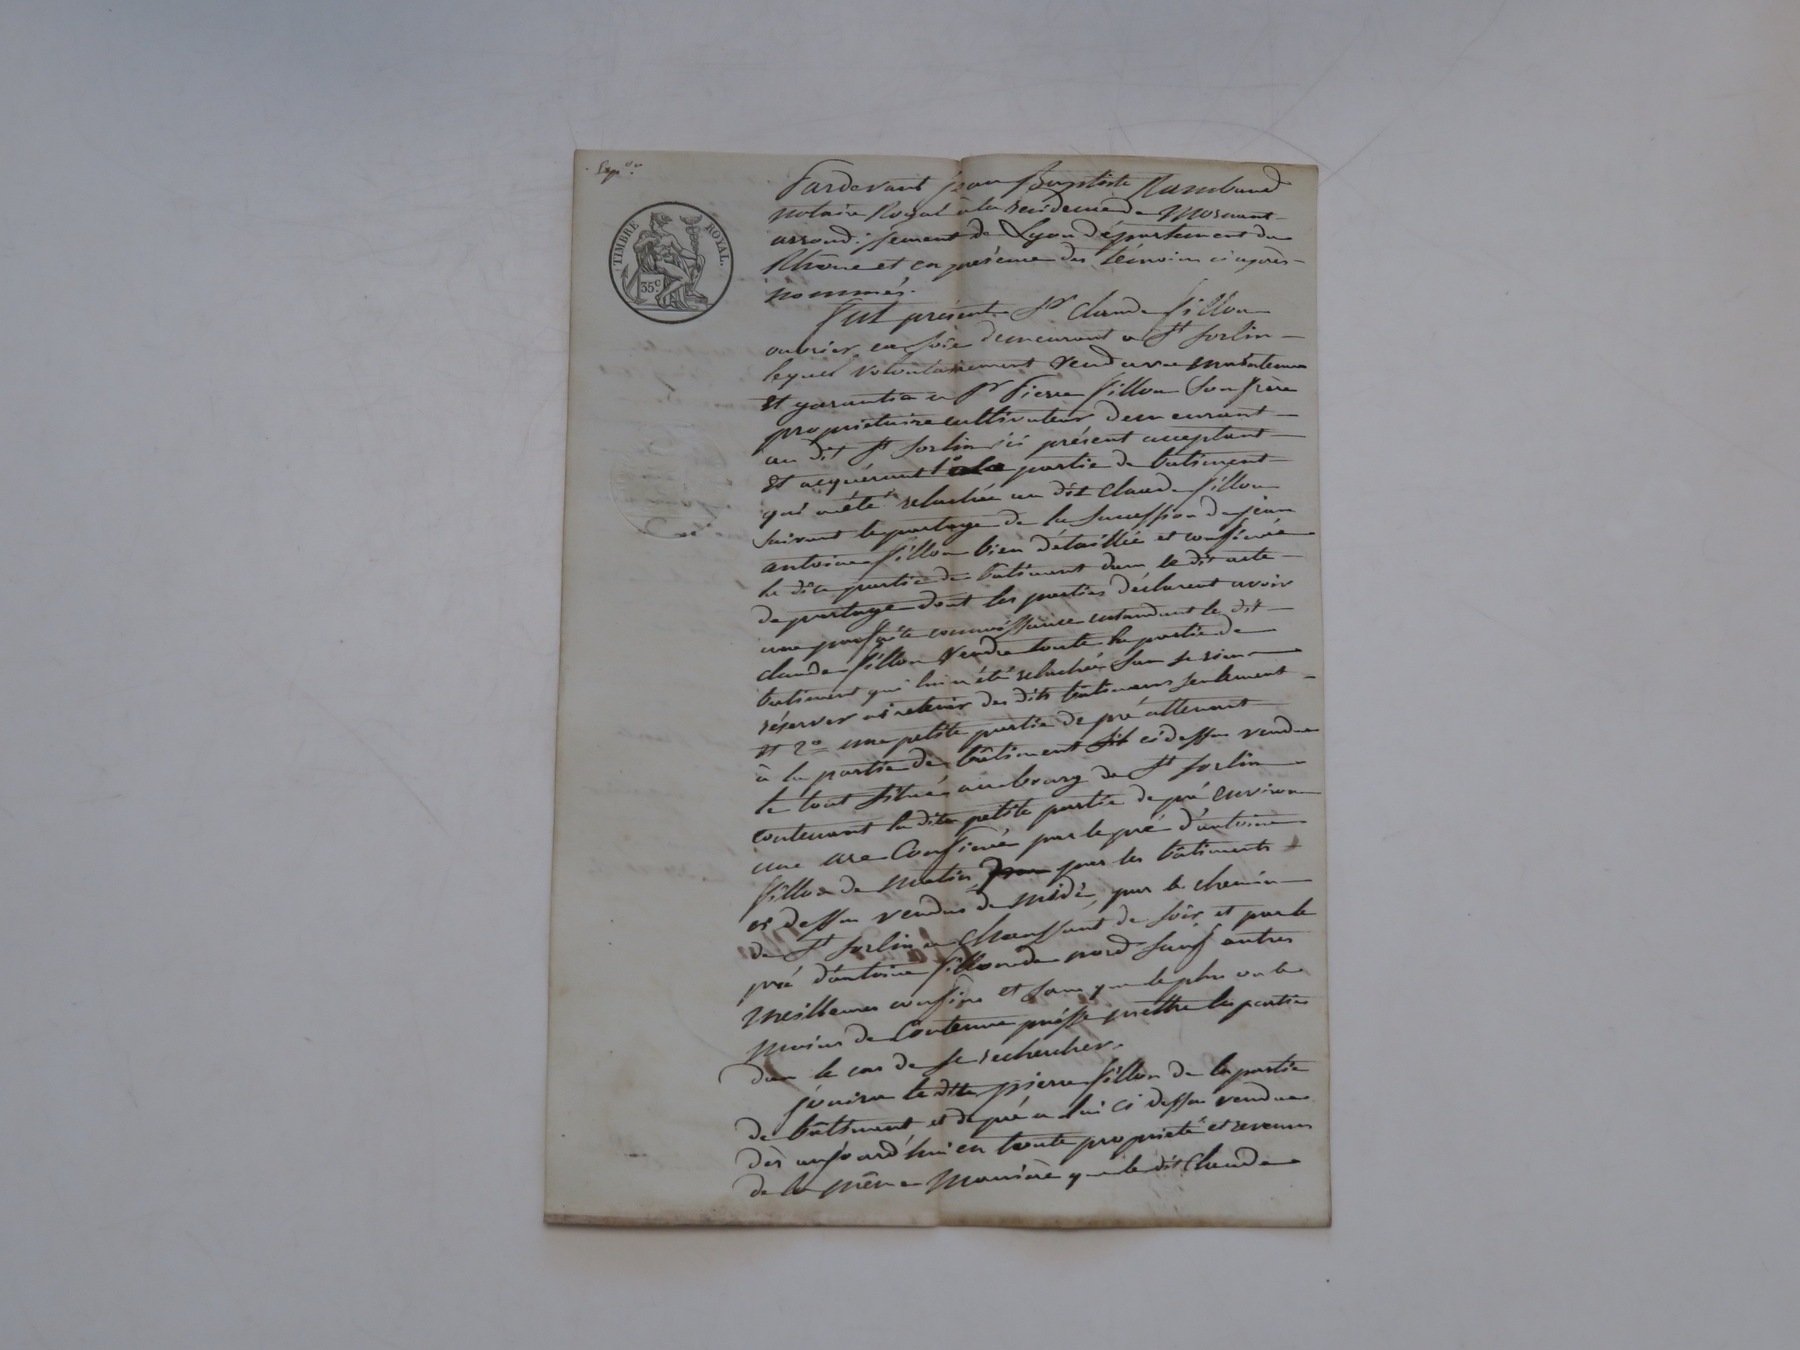 Exp.on
TIMBRE ROYAL.
35 c.
Pardevant Jean Baptiste Rambaud
notaire Royal à la residence de Mornant
arrondissement de Lyon département du
Rhône et en présence des témoins ci après
nommés.
Fut présent Sr Claude fillon
ouvrier en soie demeurant a St Sorlin
lequel volontairement vend avec maintenue
et garantie a Sr Pierre fillon son frère
propriétaire cultivateur demeurant
au dit St Sorlin ici présent acceptant
et acquérant 1o la partie de batiment
qui a été relachée au dit Claude fillon
suivant le partage de la succession de jean
antoine fillon bien détaillée et confinée
la dite partie de batiment dans le dit acte
de partage dont les parties déclarent avoir
une parfaite connoissance entandant le dit
claude fillon vendre toute la partie de
batiment qui lui a été relachée sans se rien
réserver ni retenir des dits bâtimens seulement
et 2o une petite partie de pré attenant
à la partie de bâtiment ci dessus vendue
le tout situé au bourg de St Sorlin
contenant la dite petite partie de pré environ
une are Confinée par le pré d'antoine
fillon de matin par les bâtiments
ci dessus vendus de midi, par le chemin
de St Sorlin a Chaussant de soir et par le
pré d'antoine fillon de nord sauf autres
meilleurs confins et sans que le plus ou le
moins de Contenue puisse mettre les parties
dans le cas de se rechercher.
jouira le dit pierre fillon de la partie
de bâtiment et de pré a lui ci dessus vendue
dès aujourd'hui en toute propriété et revenus
de la même manière que le dit Claude